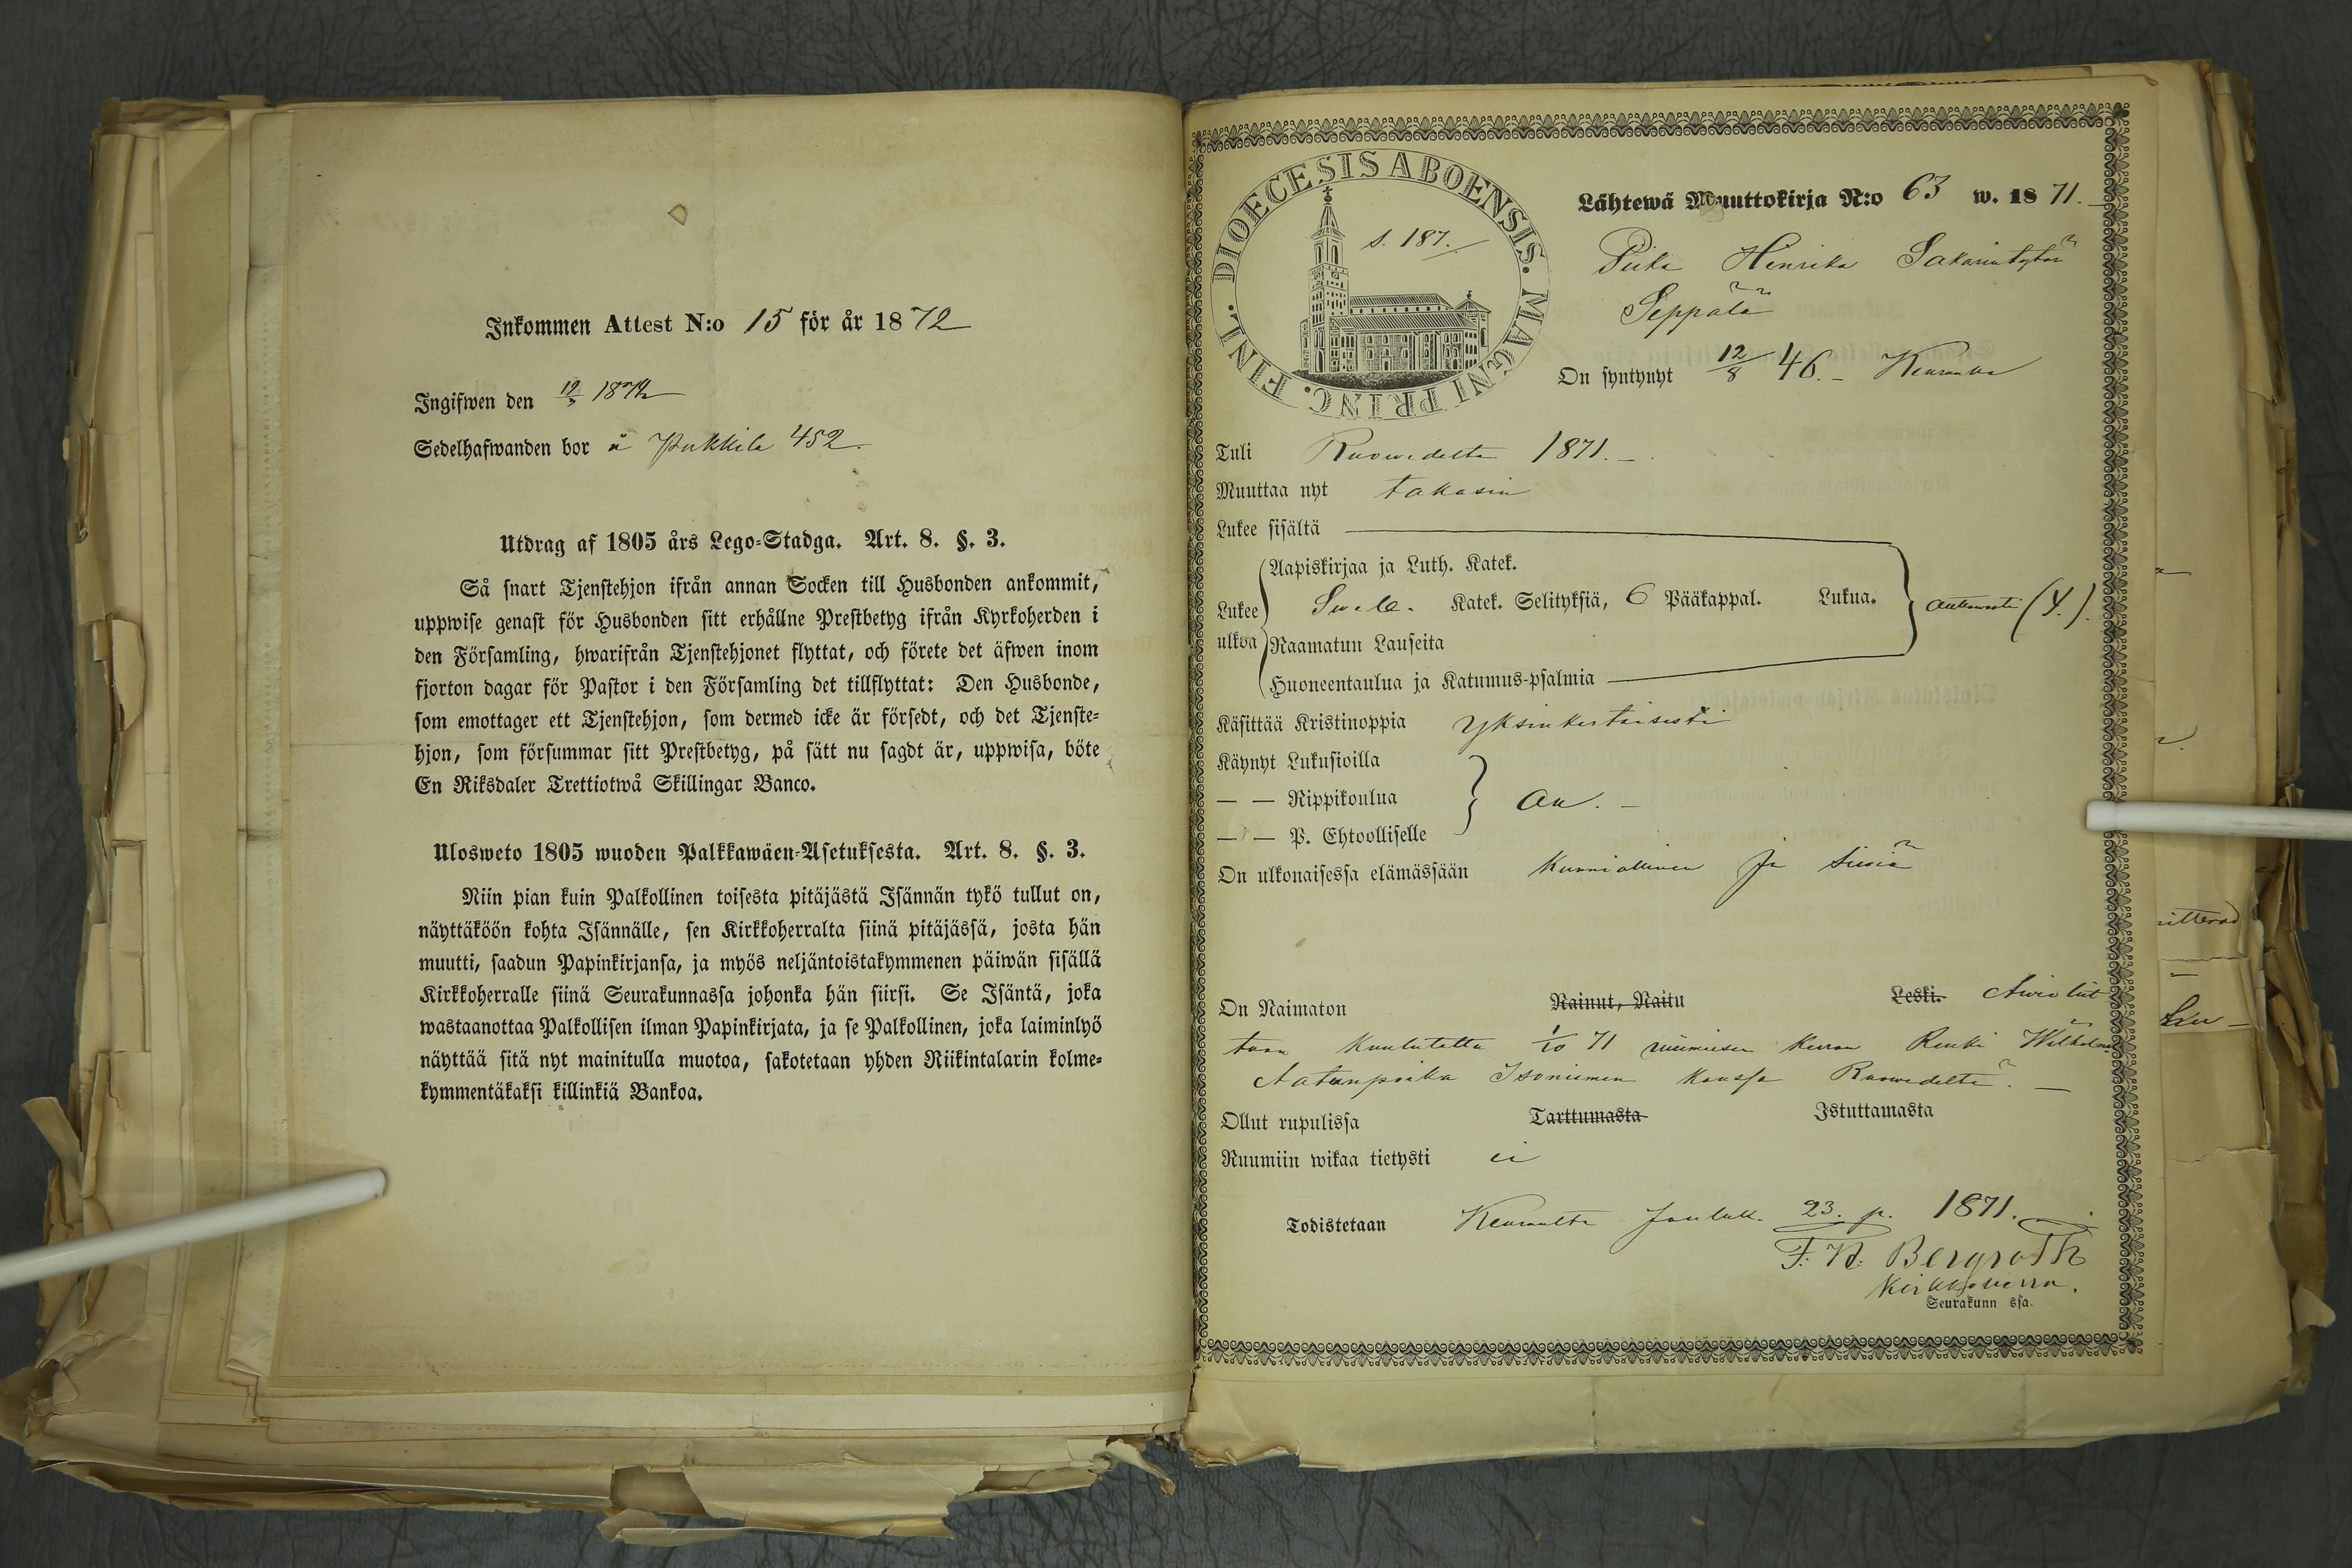 Inkommen Attest N:o 15 för år 1872
Ingifwen den 1872
Sedelhafwanden bor å Pukkila 452.
Utdrag af 1805 års Lego=Stadga. Art. 8. §. 3.
Så snart Tjenstehjon ifrån annan Socken till Husbonden ankommit,
uppwise genast för Husbonden sitt erhållne Prestbetyg ifrån Kyrkoherden i
den Församling, hwarifrån Tjenstehjonet flyttat, och förete det äfwen inom
fjorton dagar för Pastor i den Församling det tillflyttat: Den Husbonde,
som emottager ett Tjenstehjon, som dermed icke är försedt, och det Tjenste=
hjon, som försummar sitt Prestbetyg, på sätt nu sagdt är, uppwisa, böte
En Riksdaler Trettiotwå Skillingar Banco.
Ulosweto 1805 wuoden Palkkawäen=Asetuksesta. Art. 8. §. 3.
Niin pian kuin Palkollinen toisesta pitäjästä Isännän tykö tullut on,
näyttäköön kohta Isännälle, sen Kirkkoherralta siinä pitäjässä, josta hän
muutti, saadun Papinkirjansa, ja myös neljäntoistakymmenen päiwän sisällä
Kirkkoherralle siinä Seurakunnassa johonka hän siirsi. Se Isäntä, joka
wastaanottaa Palkollisen ilman Papinkirjata, ja se Palkollinen, joka laiminlyö
näyttää sitä nyt mainitulla muotoa, sakotetaan yhden Riikintalarin kolme=
kymmentäkaksi killinkiä Bankoa.
DIOECESIS ABOENSIS. MAGNI PRINC. FINL.
s. 187.
Lähtewä Muuttokirja N:o 63 w. 1871.
Piika Henrika Sakarintytär
Seppälä
On syntynyt 12/8 46. Keuruulla
Tuli Ruowedeltä 1871.
Muuttaa nyt takasin
Lukee sisältä
Lukee ulkoa
Aapiskirjaa ja Luth. Katek.
Katek. Selityksiä, 6 Pääkappal. Lukua.
Raamatun Lauseita
Huoneentaulua ja Katumus-psalmia
auttawasti (Y.).
Käsittää Kristinoppia yksinkertaisesti
Käynyt Lukusioilla
— — Rippikoulua
— — P. Ehtoolliselle
On ulkonaisessa elämässään kunniallinen ja siwiä
On Naimaton Nainut, Naitu Leski. Awioliit-
toon kuulutettu 1/10 71 wiimeisen kerran Renki Wilhelm
Aatunpoika Isoniemen kanssa Ruowedeltä.
Ollut rupulissa Tarttumasta Istuttamasta
Ruumiin wikaa tietysti ei
Todistetaan Keuruulta Jouluk. 23. p. 1871.
F. W. Bergroth
Kirkkoherra.
Seurakunn ssa.